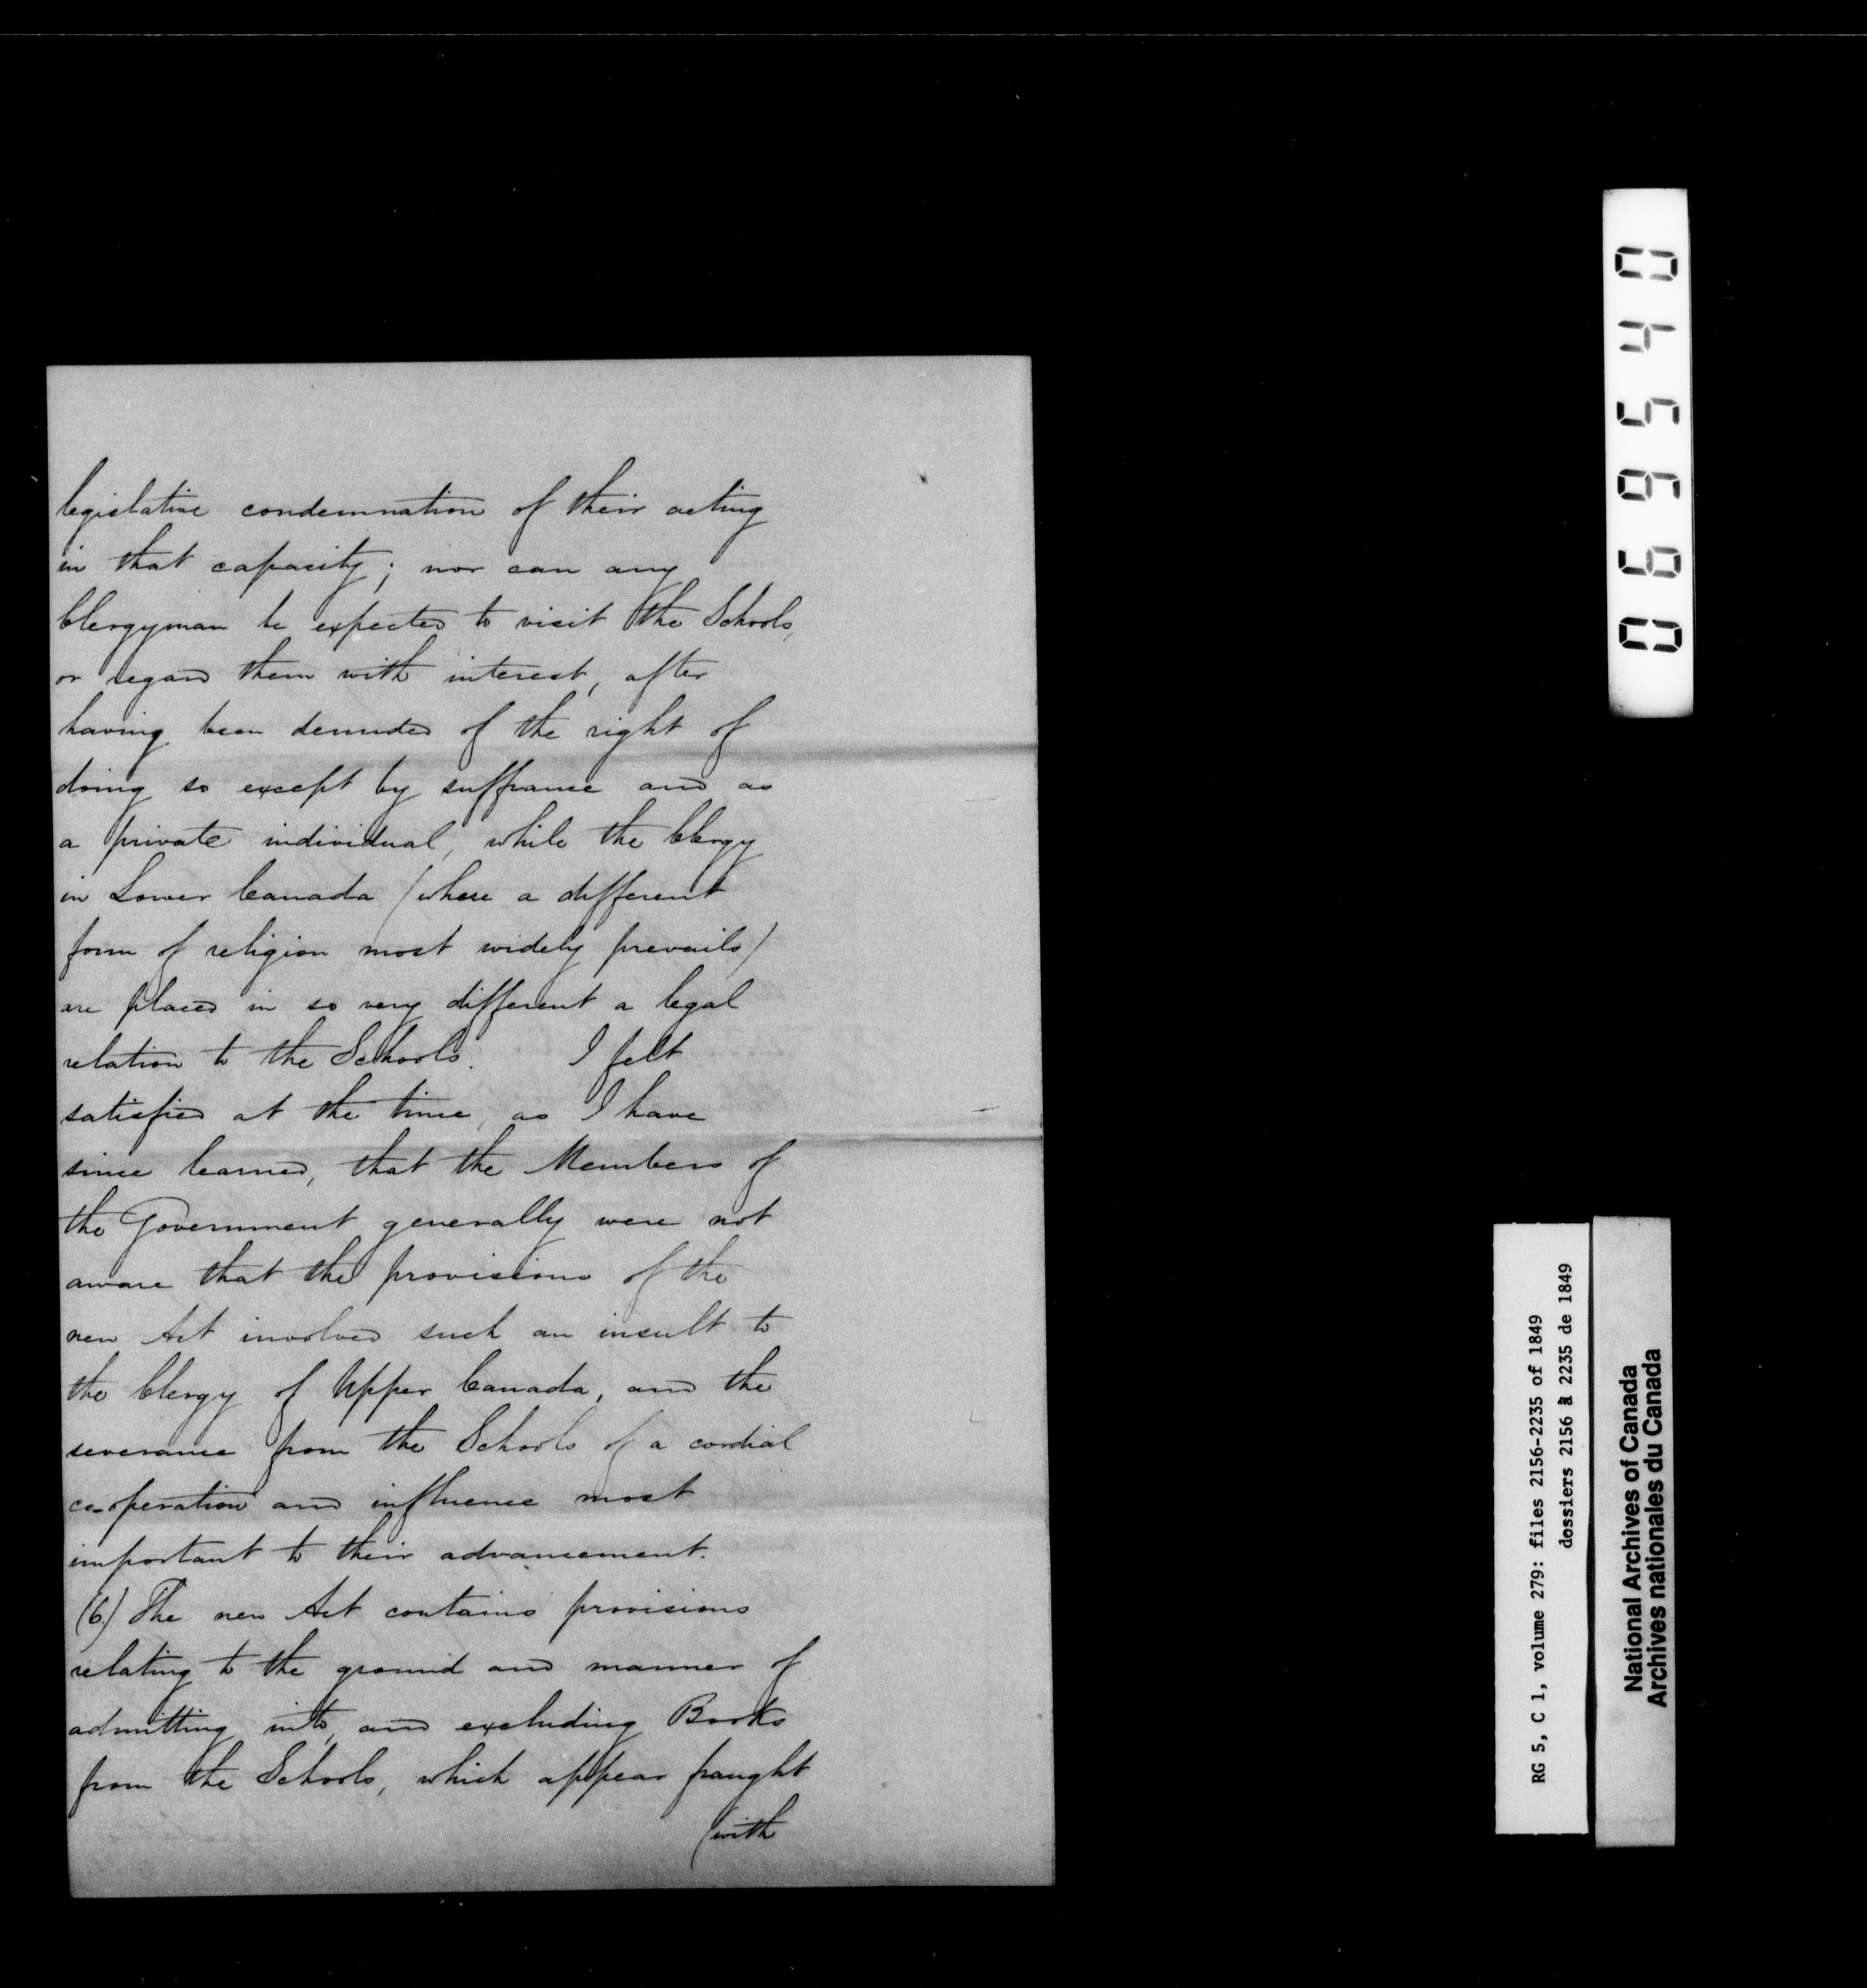 legislative condemnation of their acting
in that capacity; nor can any
Clergyman be expected to visit the Schools,
or regard them with interest, after
having been denuded of the right of
doing so except by suffrance and as
a private individual, while the Clergy
in Lower Canada (where a different
form of religion most widely prevails)
are placed in so very different a legal
relation to the Schools. I felt
satisfied at the time, as I have
since learned, that the Members of
the Government generally were not
aware that the provisions of the
new Act involved such an insult to
the Clergy of Upper Canada, and the
severance from the Schools of a cordial
co-operation and influence most
important to their advancement.
(6.) The new Act contains provisions
relating to the ground and manner of
admitting into, and excluding Books
from the Schools, which appear fraught
(with
045690
RG 5, C 1, volume 279: files 2156-2235 of 1849
dossiers 2156 à 2235 de 1849
National Archives of Canada
Archives nationales du Canada